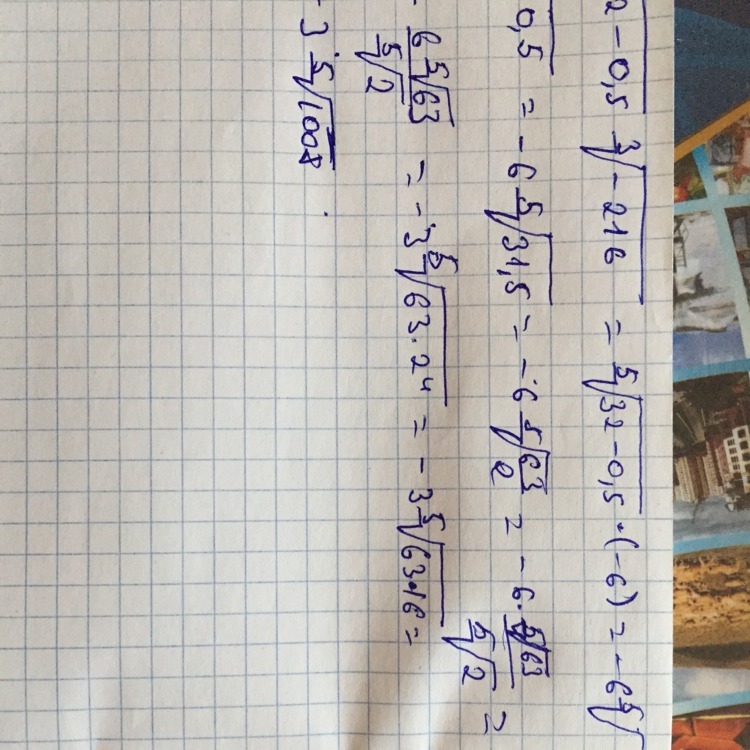 2 - 0,5 ∛-216 = ⁵√32-0,5 · (-6) = -6 ⁵√
0,5 = -6 ⁵√31,5 = -6 ⁵√63/2 = -6 · ⁵√63/⁵√2 =
- 6 ⁵√63/⁵√2 = -3 ⁵√63·2⁴ = -3 ⁵√63·16 =
- 3 ⁵√1008 .